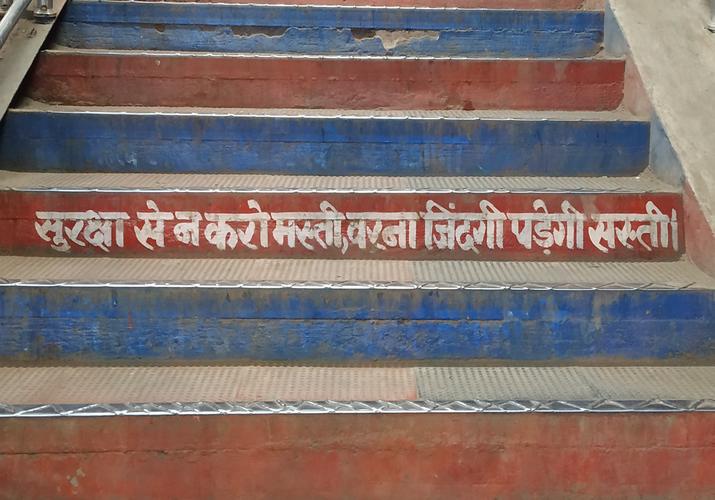 सुरक्षा से न करो मस्ती, वरना जिंदगी पड़ेगी सस्ती।